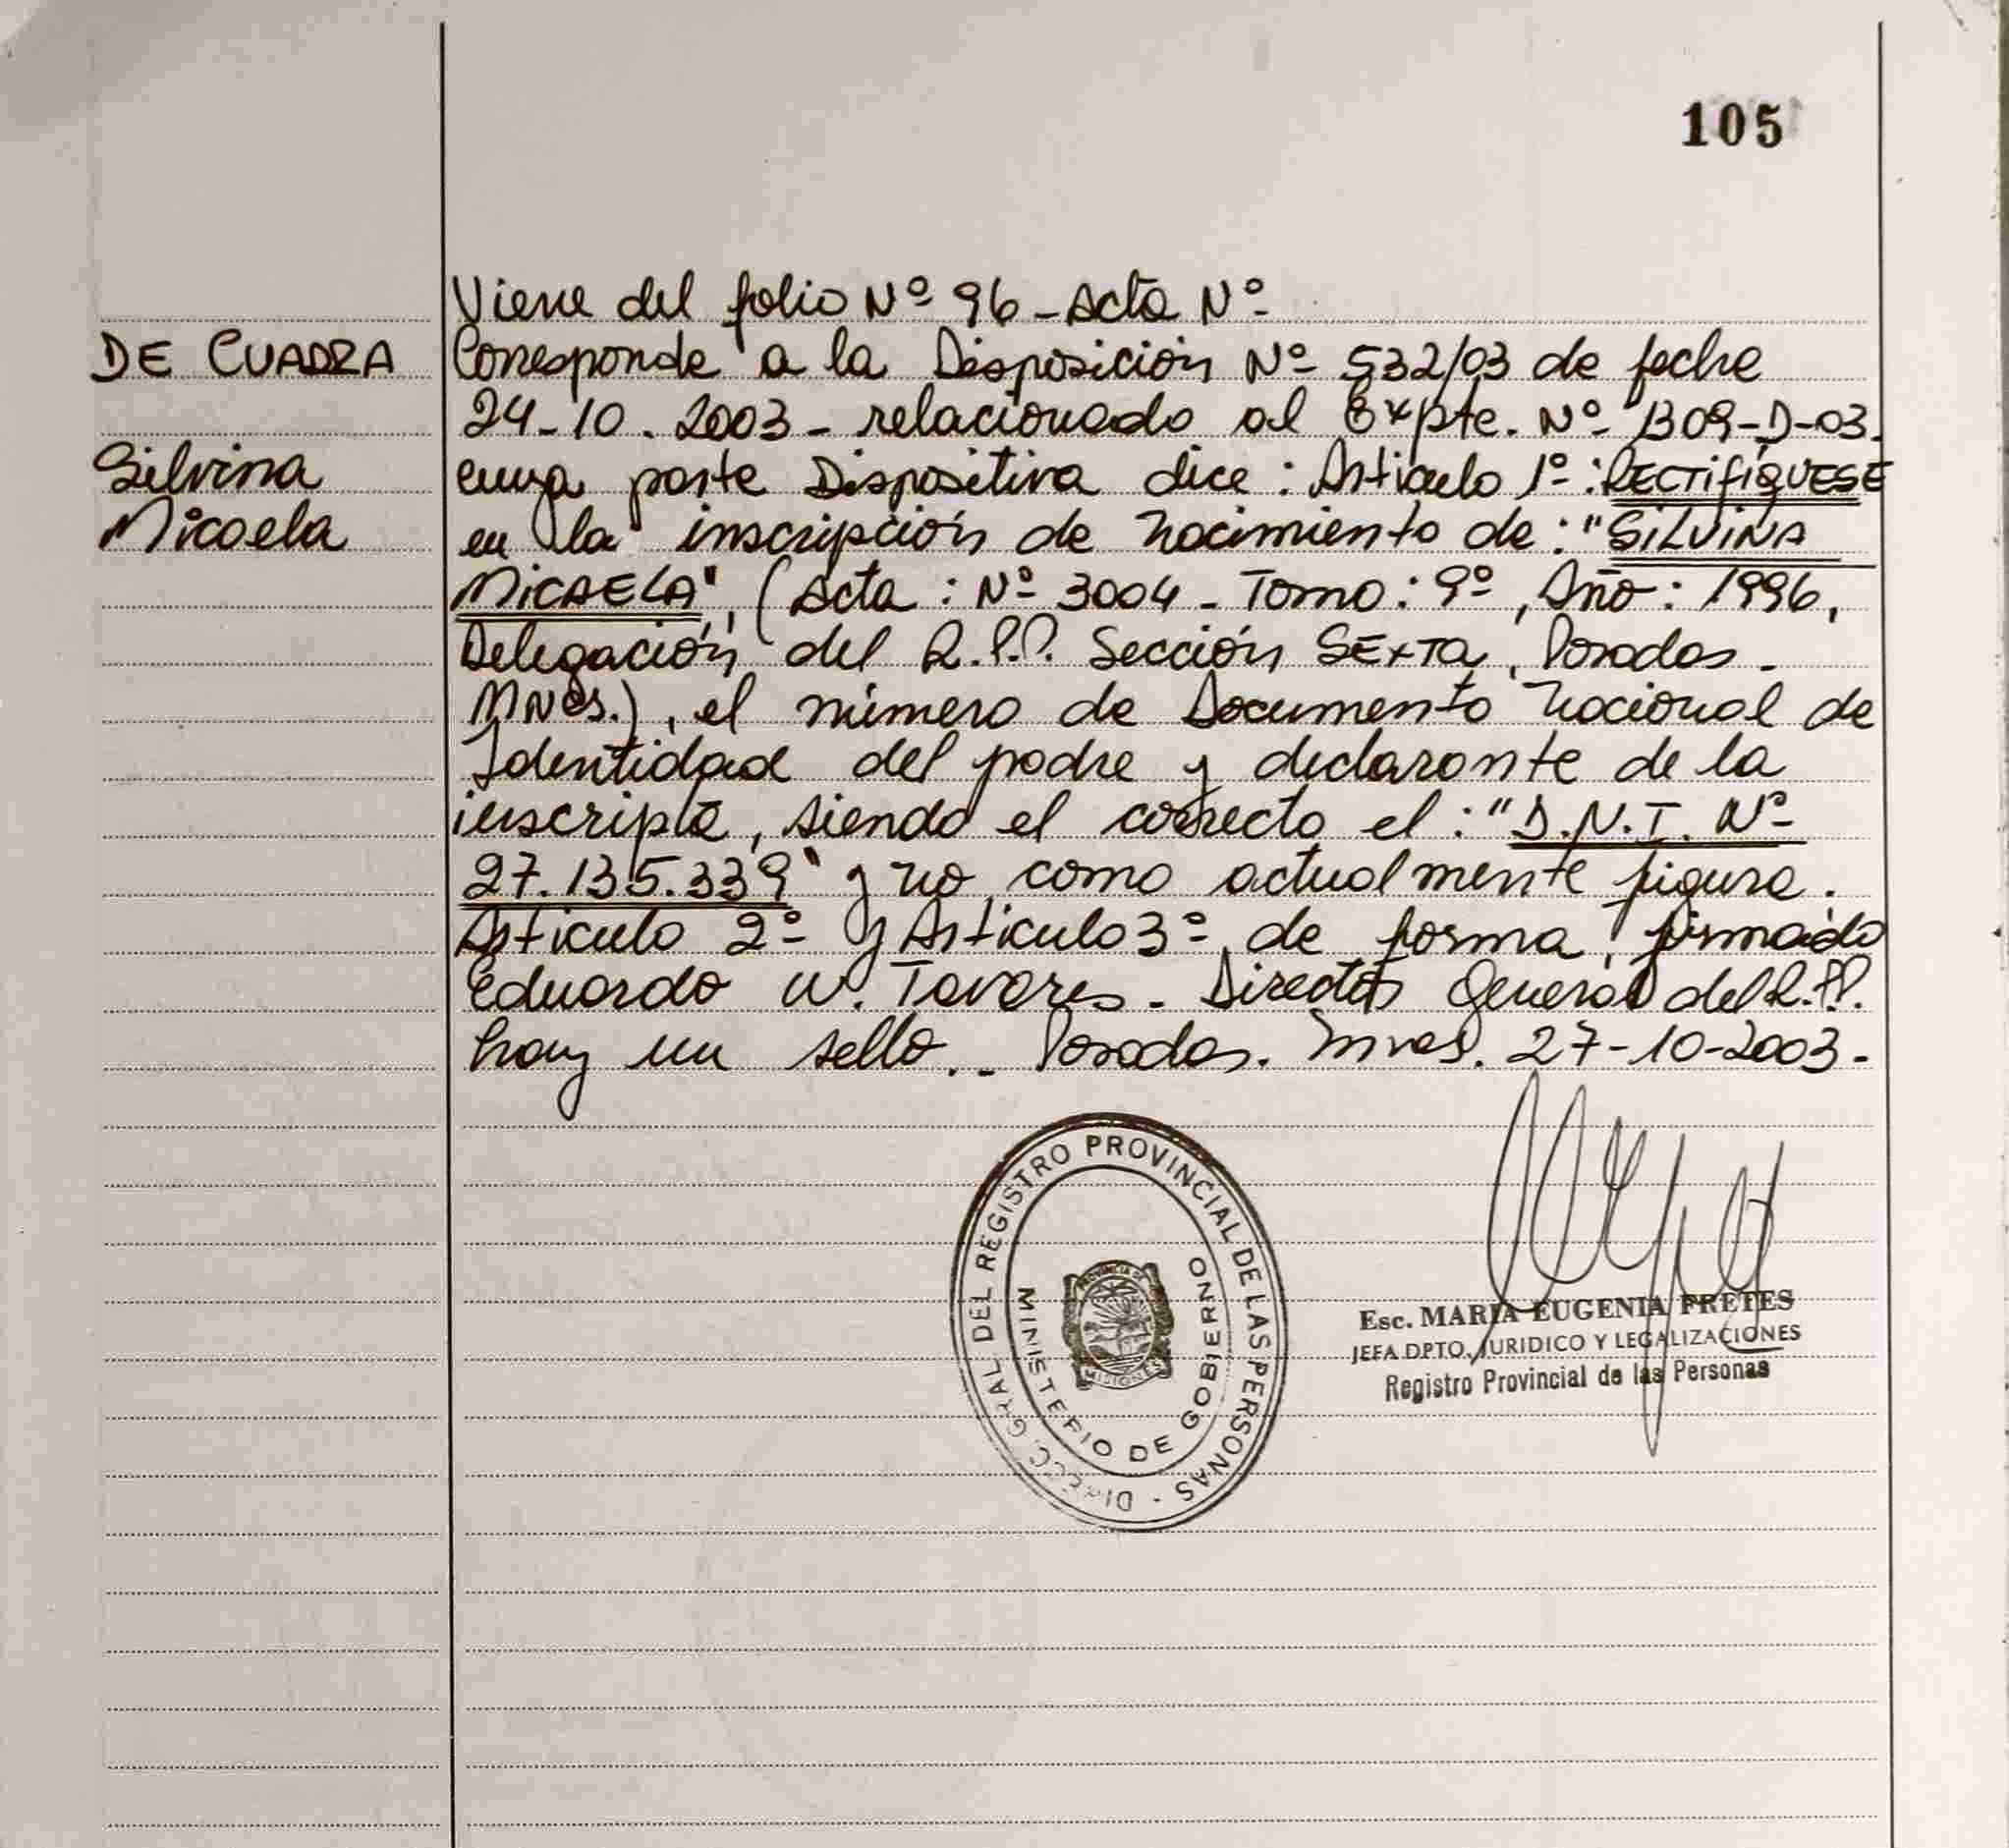 105
Viene del folio Nº 96 - Acta Nº
DE CUADRA
Corresponde a la Disposición Nº 532/03 de fecha
24-10-2003 - relacionado al Expte. Nº 1309-D-03.
Silvina
cuya parte Dispositiva dice: Artículo 1º: RECTIFIQUESE
Micaela
en la inscripción de nacimiento de: "SILVINA
MICAELA", (Acta: Nº 3004 - Tomo: 9º, Año: 1996,
Delegación del R.P.P. Sección SEXTA, Posadas -
MNES.), el número de Documento nacional de
Identidad del padre y declarante de la
inscripta, siendo el correcto el: "D.N.I. Nº
27.135.339" y no como actualmente figura.
Artículo 2º y Artículo 3º de forma, firmado
Eduardo W. Tavares - Director General del R.P.P.
hay un sello.- Posadas. Mnes. 27-10-2003-
DIRECC. GRAL DEL REGISTRO PROVINCIAL DE LAS PERSONAS -
MINISTERIO DE GOBIERNO
PROVINCIA DE
MISIONES
Esc. MARIA EUGENIA FRETES
JEFA DPTO. JURIDICO Y LEGALIZACIONES
Registro Provincial de las Personas